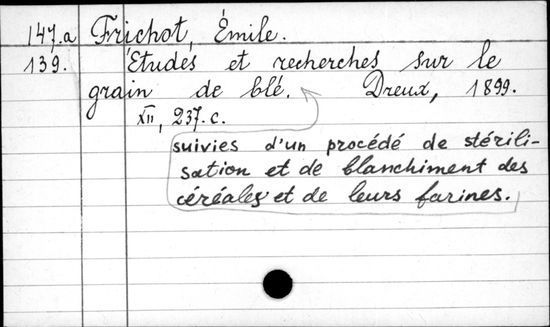 147.a Frichot, Émile.
139. Études et recherches sur le
grain de blé. Dreux, 1899.
XII, 237. c.
suivies d'un procédé de stérili-
sation et de blanchiment des
céréales et de leurs farines.